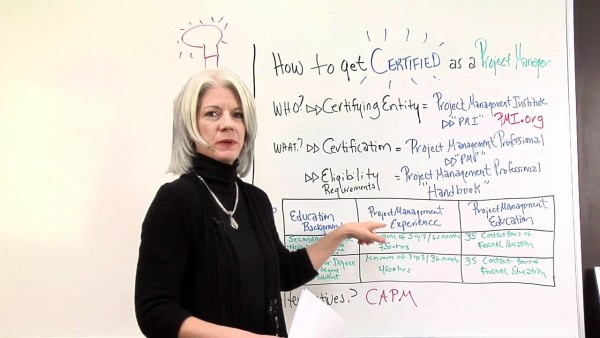 How to get CERTIFIED as a Project Manager
WHO? ▷▷ Certifying Entity = Project Management Institute
▷▷ "PMI" PMI.org
WHAT? ▷▷ Certification = Project Management Professional
▷▷ "PMP"
▷▷ Eligibility Requirements = Project Management Professional
"Handbook"
Education
Project Management Experience
Project Management Education
Minimum of 3 yrs/36 months
4500 hrs
35 Contact hours of Formal Education
35 Contact hours of Formal Education
CAPM